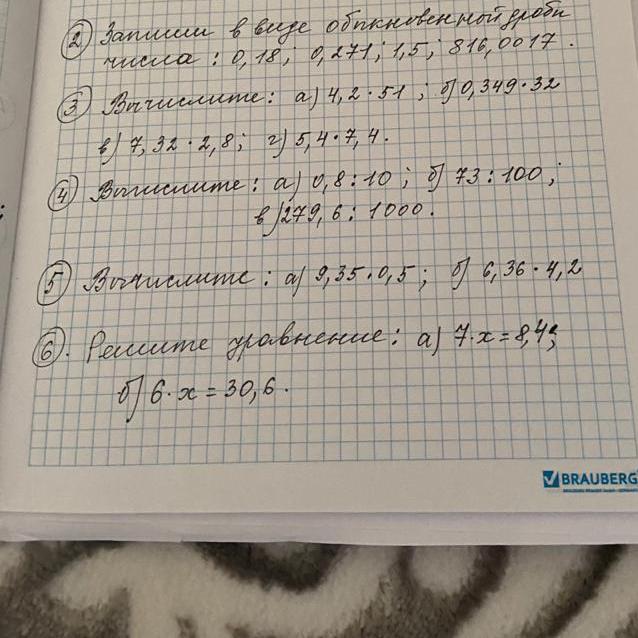 2 Запиши в виде обыкновенной дроби
числа : 0,18 ; 0,271 ; 1,5 ; 816,0017 .
3 Вычислите : а) 4,2 · 51 ; б) 0,349 · 32
в) 7,32 · 2,8 ; г) 5,4 · 7,4 .
4 Вычислите : а) 0,8 : 10 ; б) 73 : 100 ;
в) 279,6 : 1000 .
5 Вычислите : а) 9,35 · 0,5 ; б) 6,36 · 4,2
6 . Решите уравнение : а) 7 · х = 8,4 ;
б) 6 · х = 30,6 .
BRAUBERG